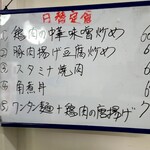 日替定食
① 鶏肉の中華味噌炒め 6
② 豚肉揚げ豆腐炒め 6
③ スタミナ焼肉 6
④ 角煮丼
⑤ ワンタン麺+鶏肉の唐揚げ 7